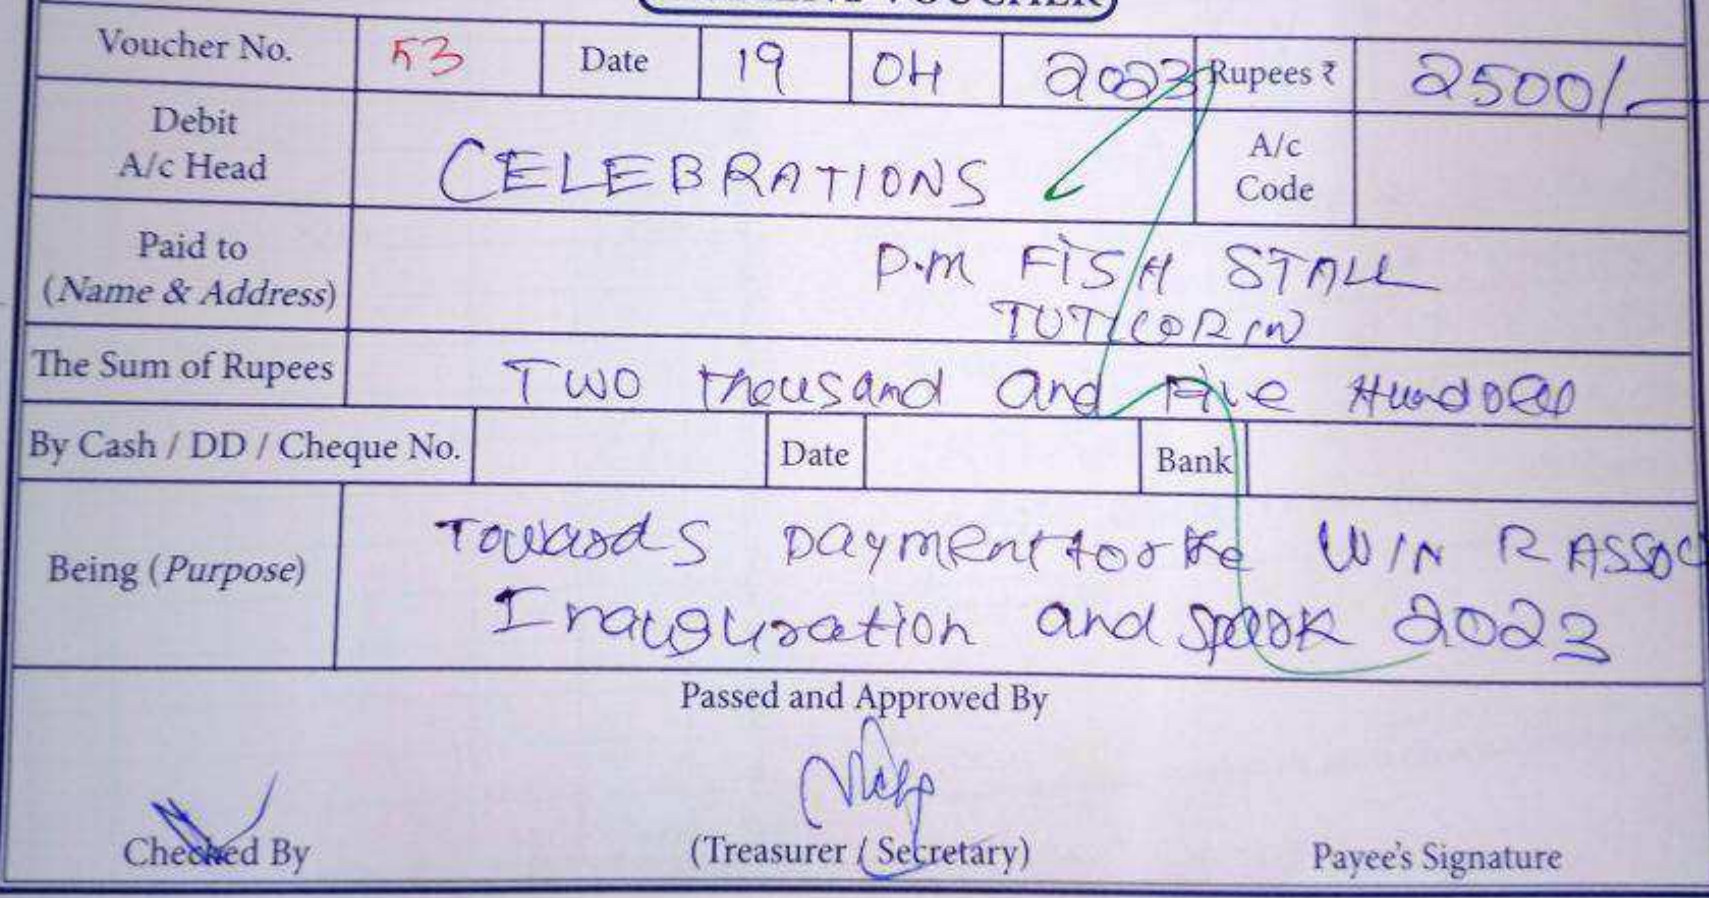 VOUCHER
Voucher No. 53 Date 19 04 2023 Rupees ₹ 2500/-
Debit A/c Head CELEBRATIONS A/c Code
Paid to (Name & Address) P.M FISH STALL
TUTICORIN
The Sum of Rupees Two thousand and Five Hundred
By Cash / DD / Cheque No. Date Bank
Being (Purpose) Towards Payment for the WIN R ASSOC
Inauguration and spark 2023
Passed and Approved By
Checked By (Treasurer / Secretary) Payee's Signature